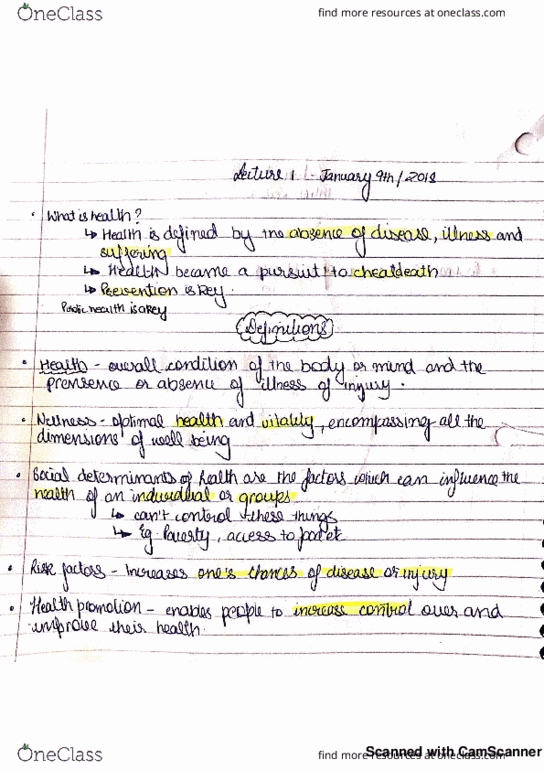 OneClass
find more resources at oneclass.com
Lecture 1 - January 9th/2018
• What is health?
↳ Health is defined by the absence of disease, illness and
suffering
↳ Health became a pursuit to cheat death
↳ Prevention is key.
Public health is a key
Definitions
• Health - overall condition of the body or mind and the
prensence or absence of illness of injury.
• Wellness - optimal health and vitality, encompassing all the
dimensions of well being
• Social determinants of health are the factors which can influence the
health of an individual or groups
↳ can't control these things
↳ Eg. Poverty, access to
• Risk factors - Increases one's chances of disease or injury
• Health promotion - enables people to increase control over and
improve their health.
OneClass
find more resources at oneclass.com
Scanned with CamScanner